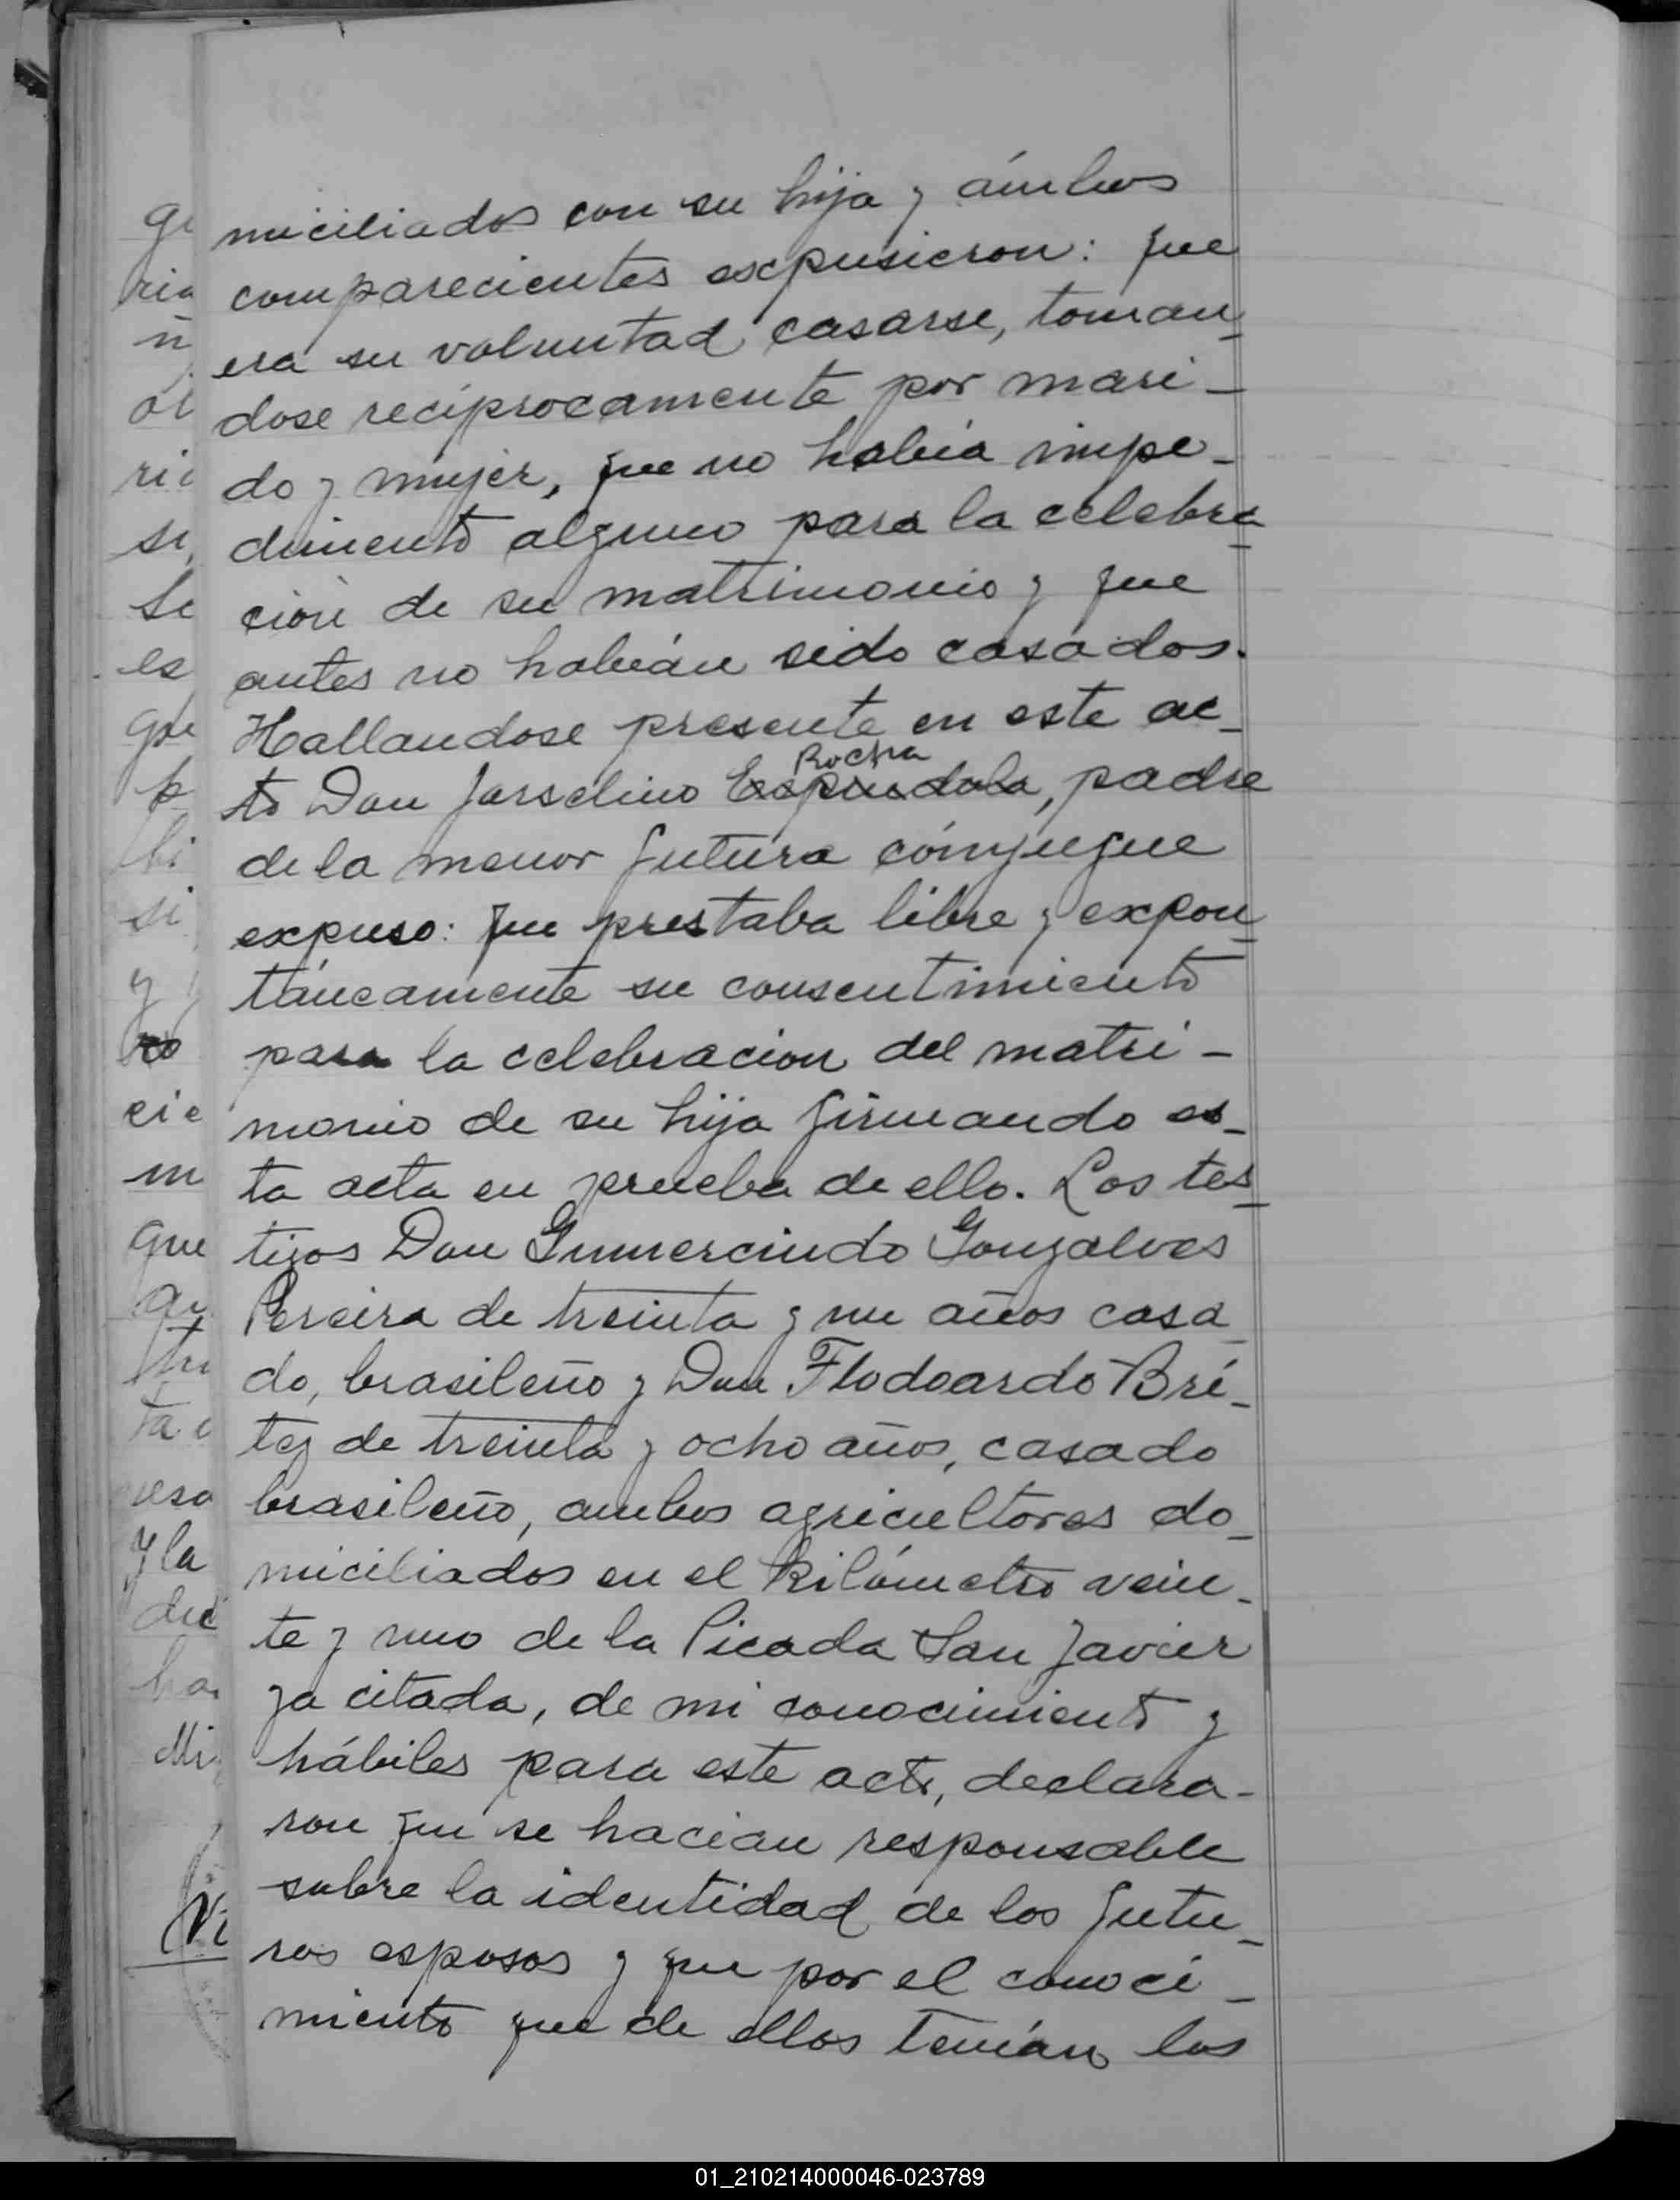 miciliados con su hija y ámbos
comparecientes expusieron: que
era su voluntad casarse, toman_
dose recíprocamente por mari_
do y mujer, que no había impe_
dimento alguno para la celebra_
ción de su matrimonio y que
antes no habían sido casados.
Hallandose presente en este ac_
Rocha
to Don Jorselino Espindola, padre
de la menor futura cónyugue
expuso: que prestaba libre y expon_
táneamente su consentimiento
para la celebracion del matri_
monio de su hija firmando es_
ta acta en prueba de ello. Los tes_
tigos Don Gumercindo Gonzalves
Pereira de treinta y un años casa_
do, brasileño y Don Flodoardo Bri_
tez de treinta y ocho años, casado
brasileño, ambos agricultores do_
miciliados en el kilómetro vein_
te y uno de la Picada San Javier
ya citada, de mi conocimiento y
hábiles para este acto, declara_
ron que se hacian responsable
sobre la identidad de los futu_
ros esposos y que por el conoci_
miento que de ellos tenían los
01_210214000046-023789